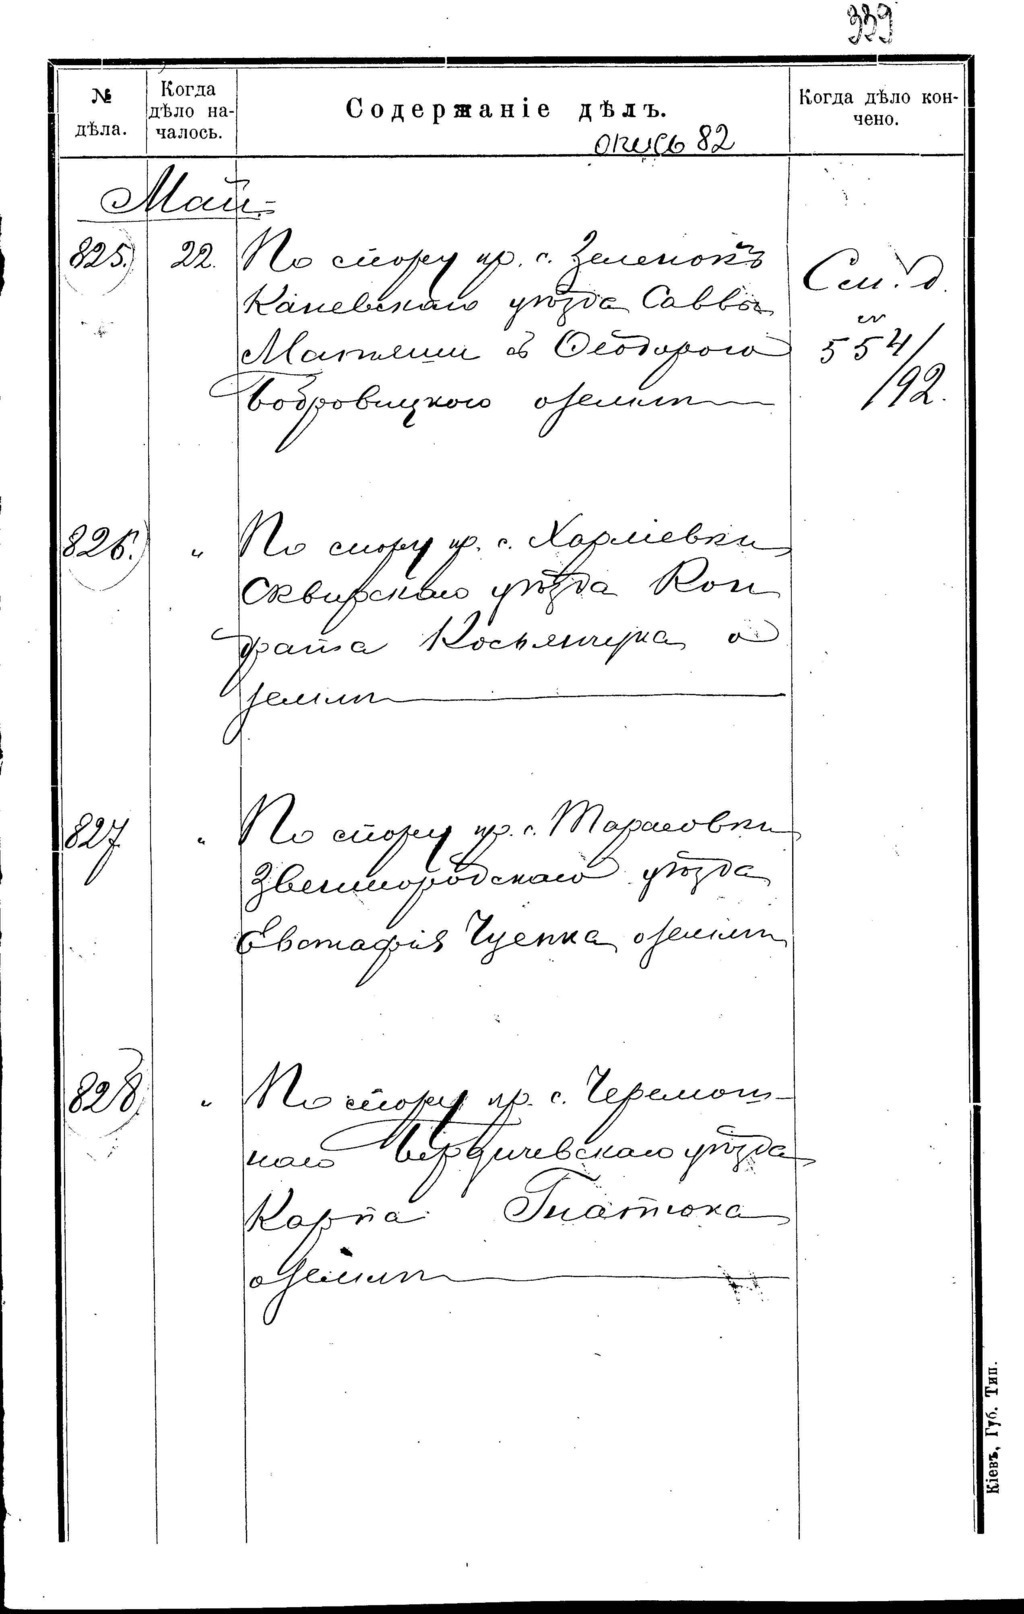 339
№ дѣла.
Когда дѣло началось.
Содержаніе дѣлъ.
Когда дѣло кончено.
опись 82
Май
825. 22. По спору кр. с. Зеленокъ
Каневскаго уѣзда Саввы
Матяши съ Ѳеодорою
Бобровицкого о землѣ
См. д.
№
554/
/92.
826. " По спору кр. с. Харліевки
Сквирскаго уѣзда Кон
драта Косьянчука о
землѣ
827. " По спору кр. с. Тарасовки
Звенигородскаго уѣзда
Евстафія о землѣ
828. " По спору кр. с. Черемош-
наго Бердичевскаго уѣзда
Карпа Гнатюка
о землѣ
Кіевъ, Губ. Тип.